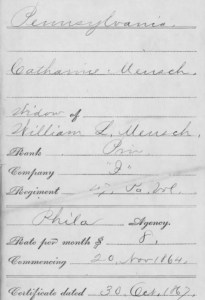 Pennsylvania.
Catharine Mensch.
Widow of
William L. Mensch.
Rank Priv
Company
Regiment Pa. Vol.
Phila Agency.
Rate per month $ 8.
Commencing 20 Nov 1864.
Certificate dated 30 Oct. 1867.